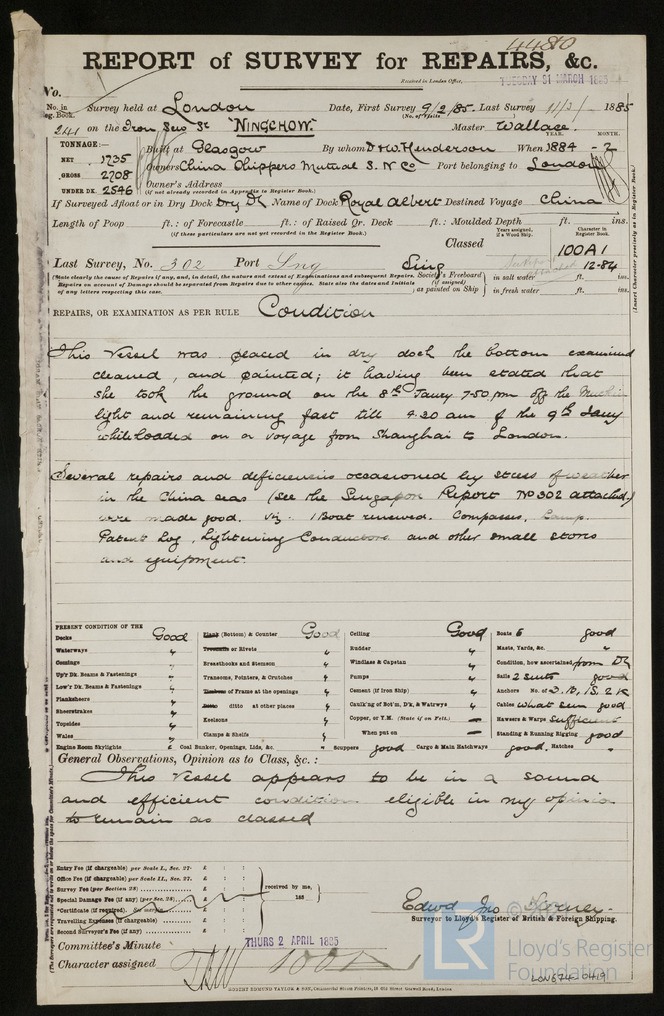 44810
REPORT of SURVEY for REPAIRS, &c.
Received in London Office, TUESDAY 31 MARCH 1885
No.
No. in Reg. Book. Survey held at London Date, First Survey 9/2/85. Last Survey 11/3/ 1885
(No. of Visits)
241 on the Iron Scw Sr "NINGCHOW." Master Wallace.
TONNAGE:— YEAR. MONTH.
NET 1735 Built at Glasgow By whom D & W. Henderson When 1884 - 2
GROSS 2708 Owners China Shippers Mutual S. N. Co Port belonging to London
UNDER DK. 2546 Owner's Address
(if not already recorded in Appendix to Register Book.)
If Surveyed Afloat or in Dry Dock Dry Dk Name of Dock Royal Albert Destined Voyage China
Length of Poop ft.: of Forecastle ft.: of Raised Qr. Deck ft.: Moulded Depth ft. ins.
(if these particulars are not yet recorded in the Register Book.)
Years assigned, if a Wood Ship. Character in Register Book.
Classed 100A1
Last Survey, No. 302 Port Sng Sing 12-84
(State clearly the cause of Repairs if any, and, in detail, the nature and extent of Examinations and subsequent Repairs. Society's Freeboard in salt water ft. ins.
Repairs on account of Damage should be separated from Repairs due to other causes. State also the dates and Initials (if assigned)
of any letters respecting this case. as painted on Ship in fresh water ft. ins.
(Insert Character precisely as in Register Book.)
REPAIRS, OR EXAMINATION AS PER RULE Condition
This Vessel was placed in dry dock the bottom examined
cleaned, and painted; it having been stated that
she took the ground on the 8th Jany 7-50 pm off the
light and remaining fast till 4.20 am of the 9th Jany
while loaded on a voyage from Shanghai to London.
Several repairs and deficiencies occasioned by stress of weather
in the China seas (see the Singapore Report No 302 attached)
were made good. viz. 1 Boat renewed. Compasses, Lamps.
Patent Log, Lightening Conductors and other small stores
and equipment.
PRESENT CONDITION OF THE
Decks Good
Waterways "
Comings "
Up'r Dk. Beams & Fastenings "
Low'r Dk. Beams & Fastenings "
Planksheers "
Sheerstrakes "
Topsides "
Wales "
Engine Room Skylights "
Plank (Bottom) & Counter Good
Treenails or Rivets "
Breasthooks and Stemson "
Transoms, Pointers, & Crutches "
Timbers of Frame at the openings "
Ditto ditto at other places "
Keelsons "
Clamps & Shelfs "
Coal Bunker, Openings, Lids, &c. "
Ceiling Good
Rudder "
Windlass & Capstan "
Pumps "
Cement (if Iron Ship) "
Caulk'ng of Bot'm, D'k, & Watrwys "
Copper, or Y.M. (State if on Felt.)
When put on
Scuppers good Cargo & Main Hatchways good. Hatches "
Boats 6 good
Masts, Yards, &c. "
Condition, how ascertained from Dk
Sails 2 suits good
Anchors No. of 3. B, 1 S. 2 K
Cables what seen good
Hawsers & Warps sufficient
Standing & Running Rigging good
General Observations, Opinion as to Class, &c. :
This Vessel appears to be in a sound
and efficient condition eligible in my opinion
to remain as classed
Entry Fee (if chargeable) per Scale I., Sec. 27. £ : :
Office Fee (if chargeable) per Scale II., Sec. 27. £ : :
Survey Fee (per Section 28) £ : :
Special Damage Fee (if any) (per Sec. 28) £ : :
*Certificate (if required). £ : :
Travelling Expenses (if chargeable) £ : :
Second Surveyor's Fee (if any) £ : :
received by me,
188
Edwd Jno
Surveyor to Lloyd's Register of British & Foreign Shipping.
Committee's Minute THURS 2 APRIL 1885
Character assigned 100A1
ROBERT EDMUND TAYLOR & SON, Commercial Steam Printers, 19 Old Street Goswell Road, London
© 2021
LR
Lloyd's Register
Foundation
LON574-0419